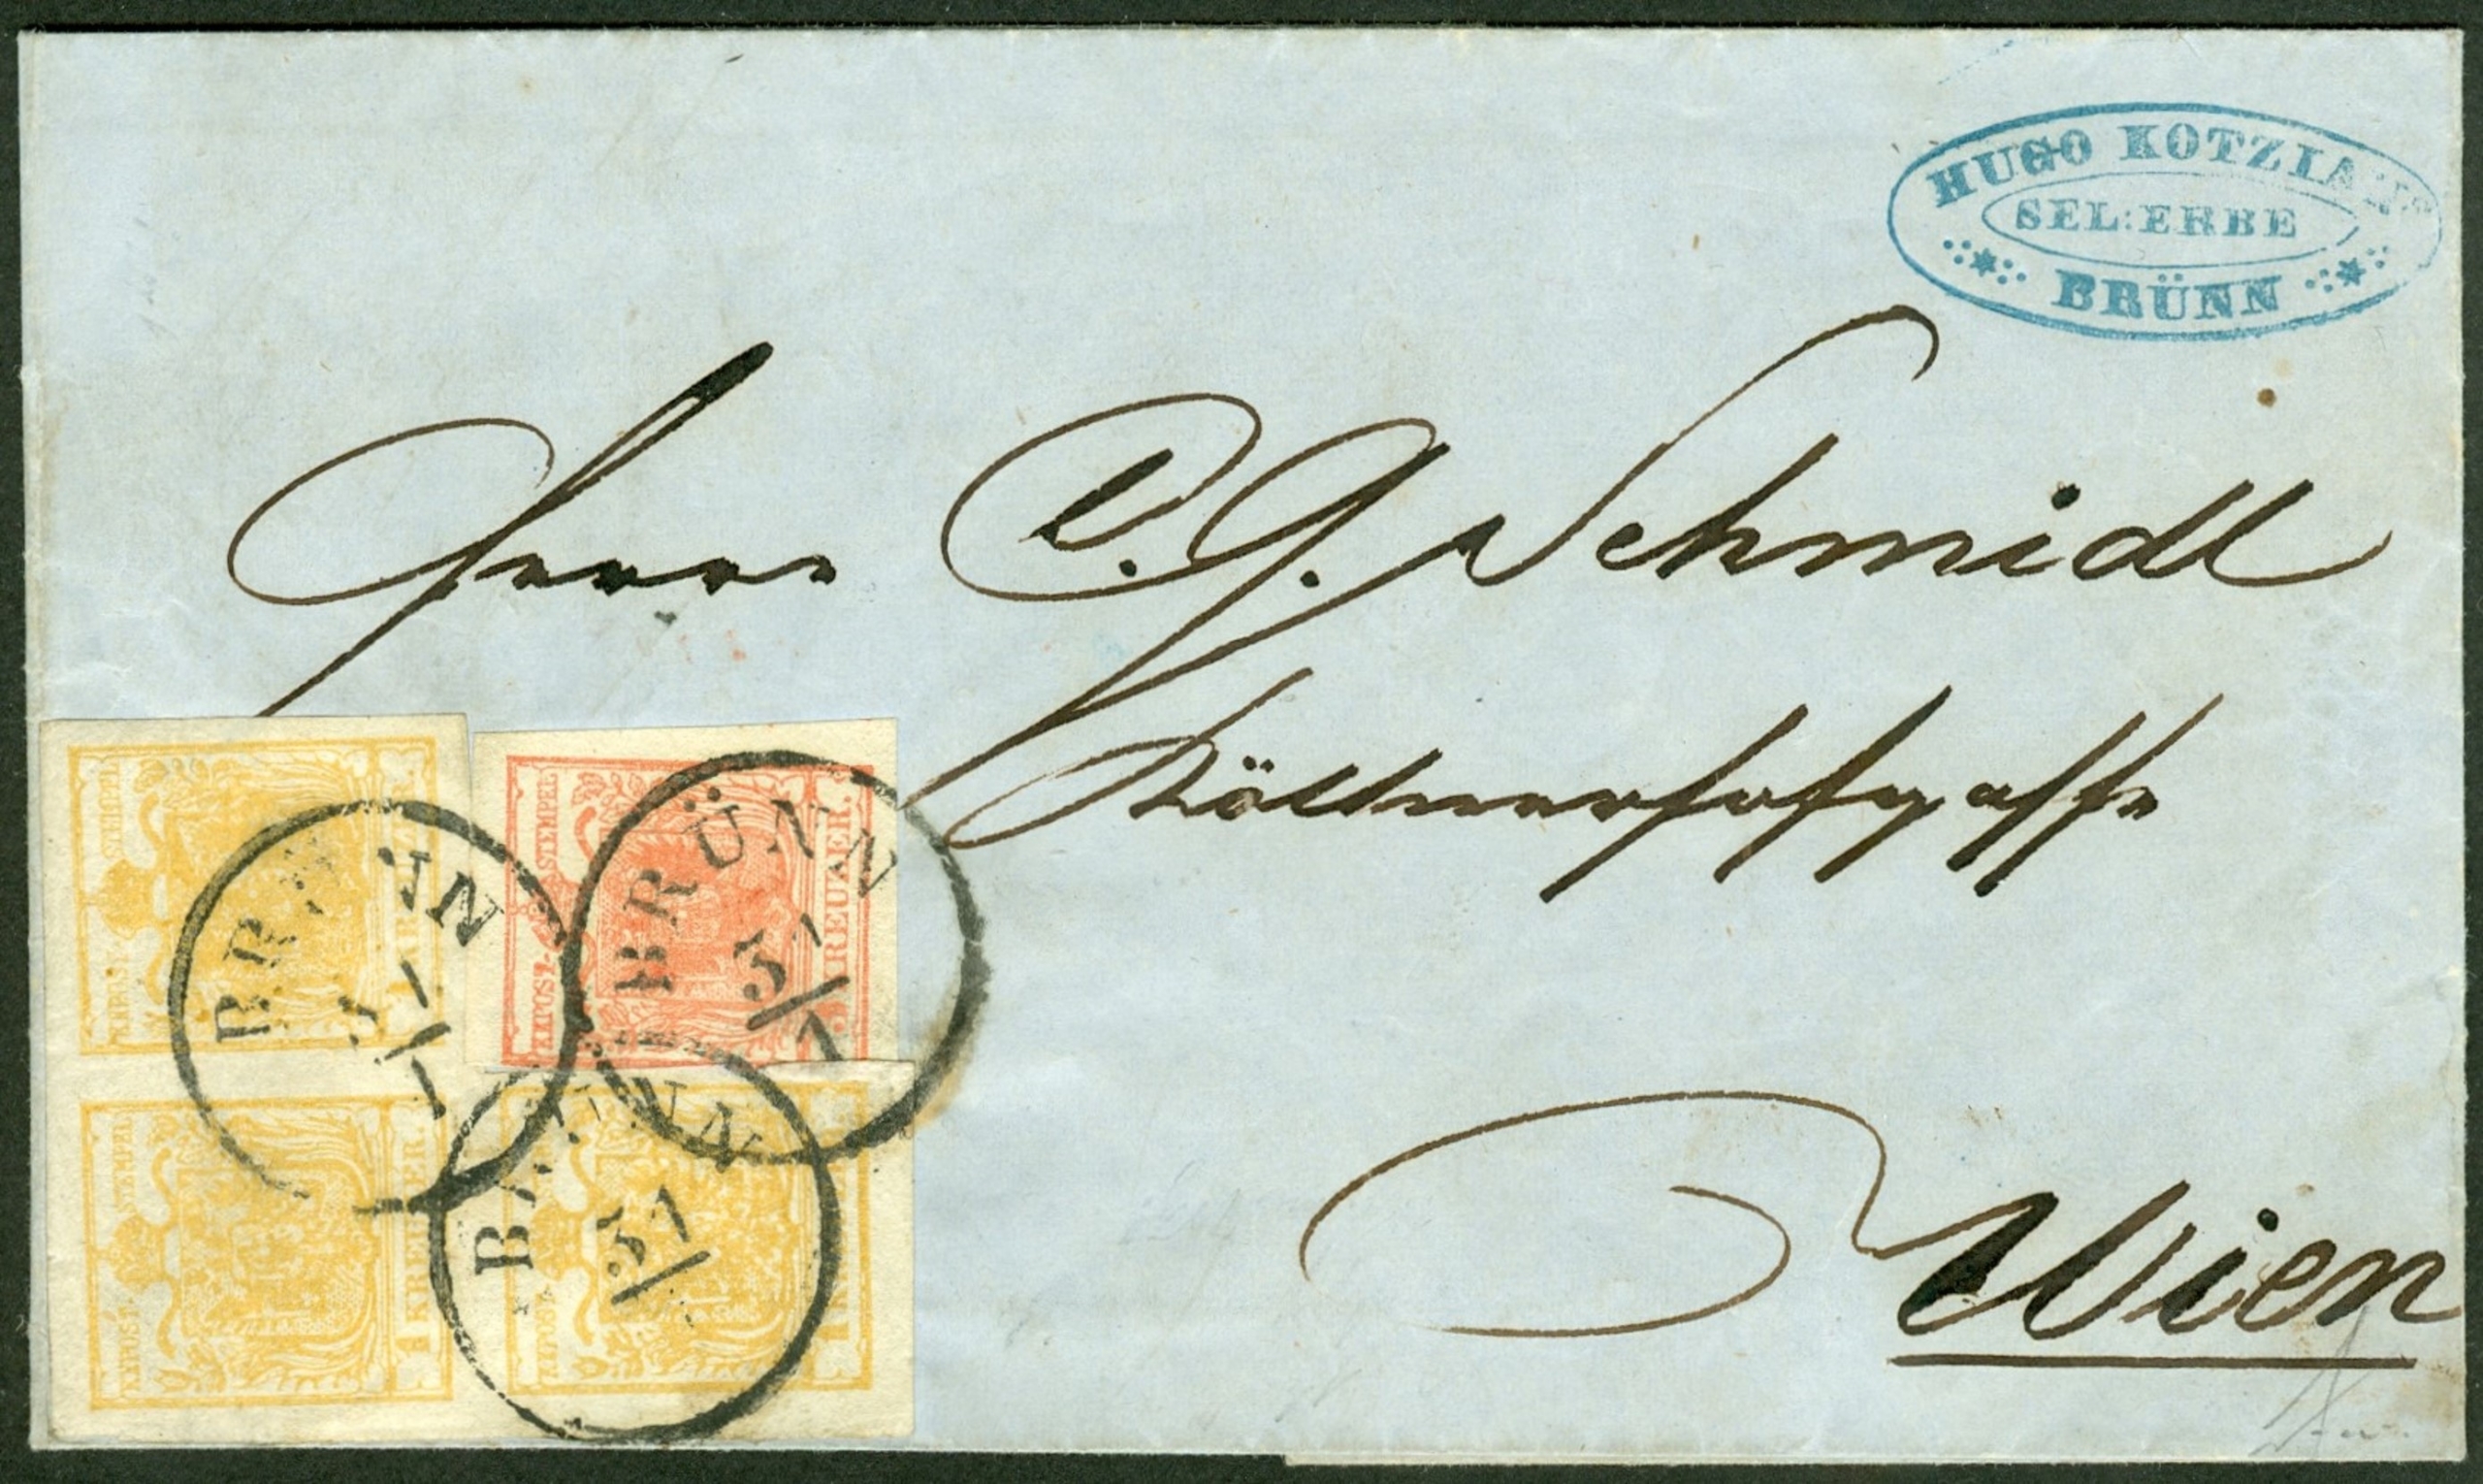 HUGO KOTZIAN'S
SEL: ERBE
BRÜNN
Herrn C. G. Schmidl
Köllnerhofgasse
Wien
K.K. POST-STEMPEL
1 KREUZER.
K.K. POST-STEMPEL
3 KREUZER.
K.K. POST-STEMPEL
1 KREUZER.
K.K. POST-STEMPEL
1 KREUZER.
BRÜNN
BRÜNN
BRÜNN